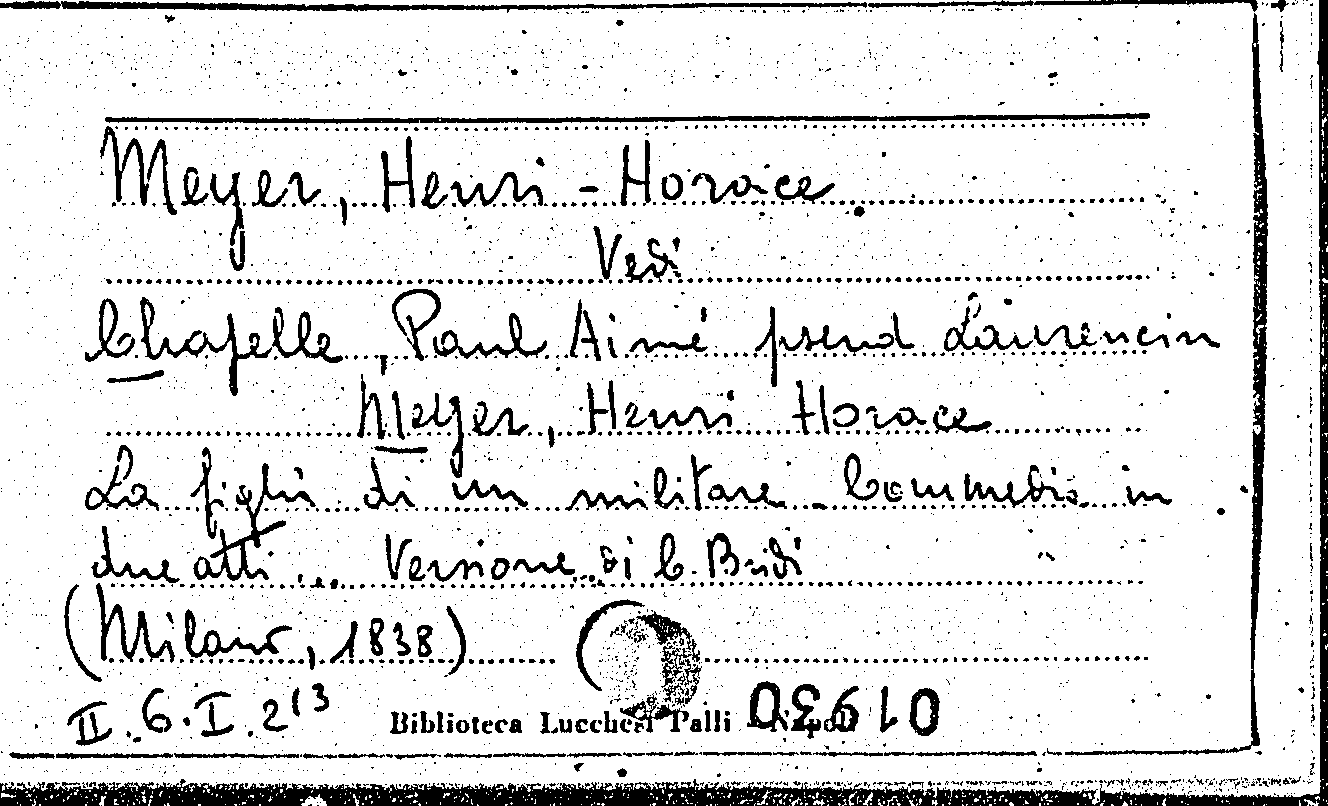 Meyer, Henri - Horace
Vedi
Chapelle, Paul Aimé pseud Laurencin
Meyer, Henri Horace
La figlia di un militare - Commedia in
due atti ... Versione di C. Bridi
(Milano, 1838)
II.6.I.2(3
Biblioteca Lucchesi Palli - Napoli